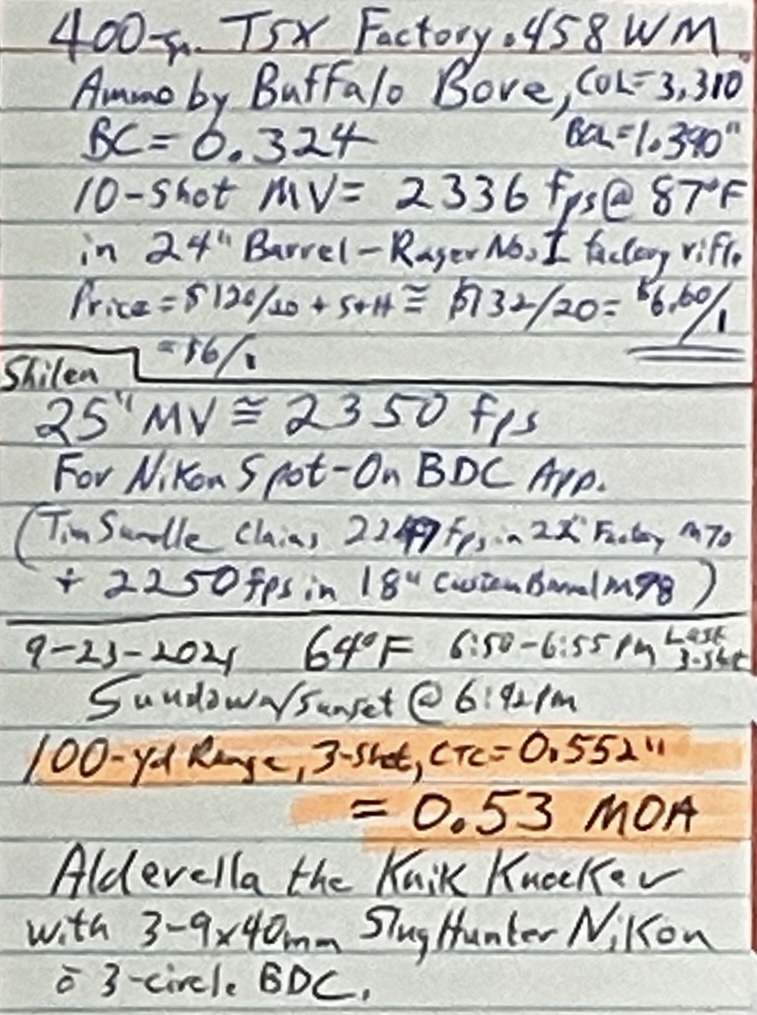 400-gr. TSX Factory .458 WM
Ammo by Buffalo Bore, COL= 3.310"
BC = 0.324 BOL=1.390"
10-shot MV= 2336 fps@ 87°F
in 24" Barrel - Ruger No. 1 factory rifle
Price = $120/20 + S+H ≅ $132/20= $6.60/1
= $6/1
Shilen
25" MV ≅ 2350 fps
For Nikon Spot-On BDC App.
(Tim Sundle Claims 2249 fps in 22" Factory M70
+ 2250 fps in 18" Custom Barrel M98)
9-23-2021 64°F 6:50-6:55 PM Last 3-shot
Sundown/Sunset @ 6:42 PM
100-yd Range, 3-shot, CTC= 0.552"
= 0.53 MOA
Alderella the Knik Knocker
with 3-9x40mm SlugHunter Nikon
c̄ 3-circle BDC.